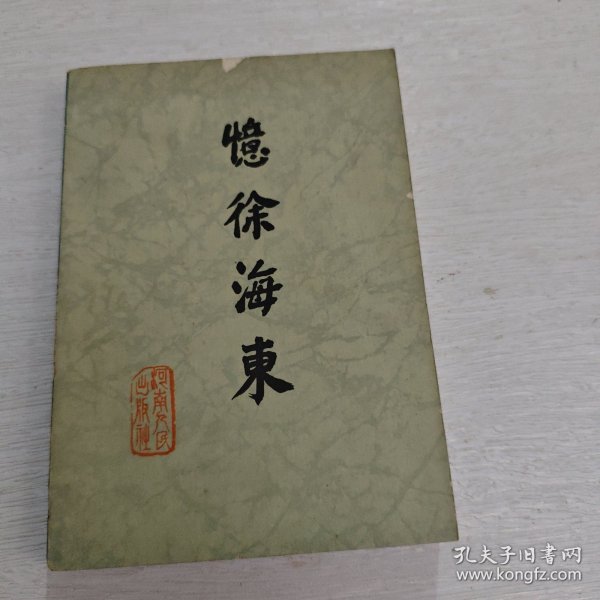 憶徐海東
河南人民
出版社
孔夫子旧書网
www.kongfz.com